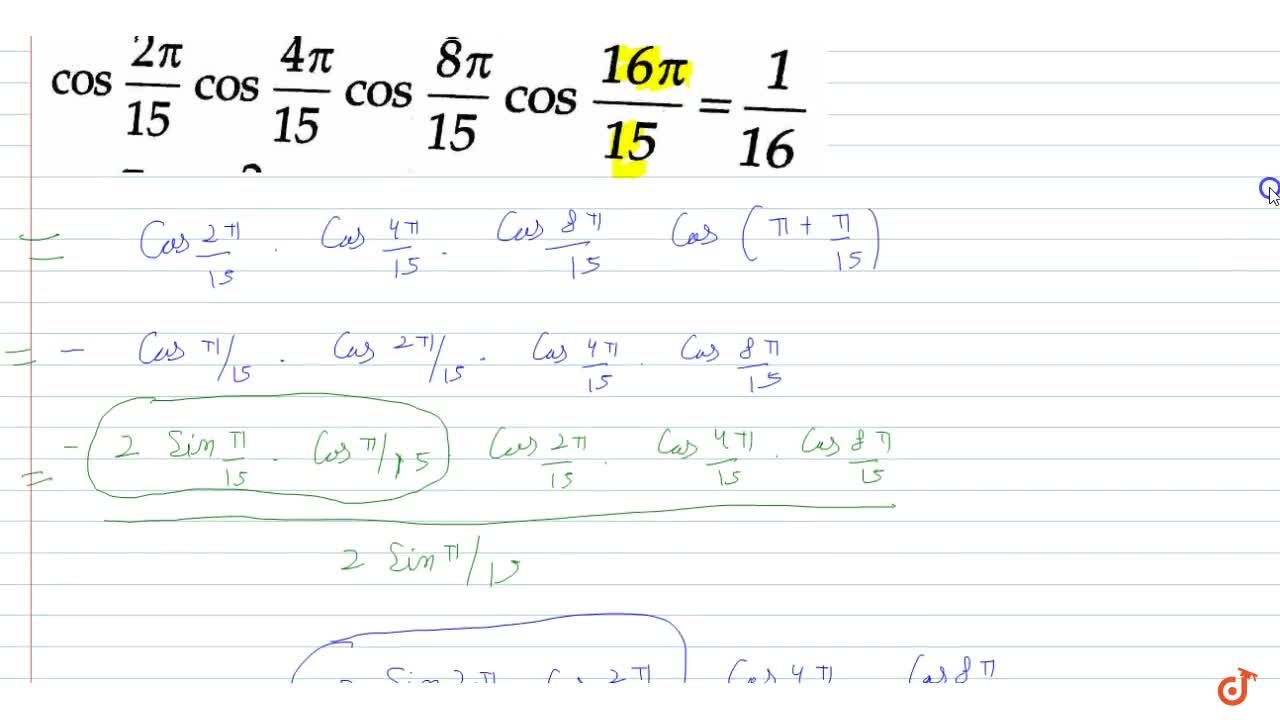 cos 2π/15 cos 4π/15 cos 8π/15 cos 16π/15 = 1/16
= Cos 2π/15 . Cos 4π/15 . Cos 8π/15 Cos (π + π/15)
= - Cos π/15 . Cos 2π/15 . Cos 4π/15 . Cos 8π/15
= - 2 Sin π/15 . Cos π/15 Cos 2π/15 . Cos 4π/15 . Cos 8π/15
2 Sin π/15
Sin 2π Cos 2π Cos 4π Cos 8π